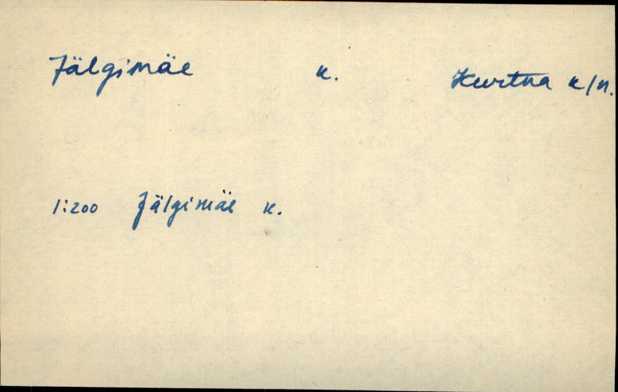 Jälgimäe k. Kurtna k/n.
1:200 Jälgimäe k.